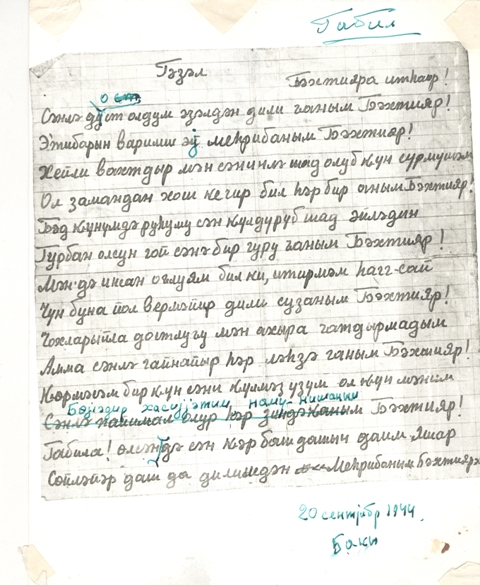 Габил
Гәзәл
Бәхтијара итһаф!
ост
Сәнлә дуст олдум әзәлдән дили ҹаным Бәхтијар!
Э'тибарын варимиш эј меһрибаным Бәхтијар!
Хејли вахтдыр мән сәнинлә шад олуб күн сүрмүшәм
Ол замандан хош кечир бил һәр бир аным Бәхтијар!
Бәд күнүмдә руһуму сән күлдүрүб шад әјләдин
Гурбан олсун гој сәнә бир гуру ҹаным Бәхтијар!
Мән дә инсан оғлујам бил ки, итирмәм һагг-сај
Чүн буна јол вермәјир дили сузаным Бәхтијар!
Чохларыјла достлуғу мән ахыра чатдырмадым
Амма сәнлә гајнајыр һәр ләһзә ганым Бәхтијар!
Көрмәсәм бир күн сәни күлмәз үзүм ол күн мәним
Бәнздир хасијјәтин, нами-нишаным
Сәнлә олур һәр Бәхтијар!
Габилә! өләндә сән гәбр баш дашын даим јашар
Сөјләјәр даш да дилиндән Меһрибаным Бәхтијар
20 сентјабр 1944.
Бакы